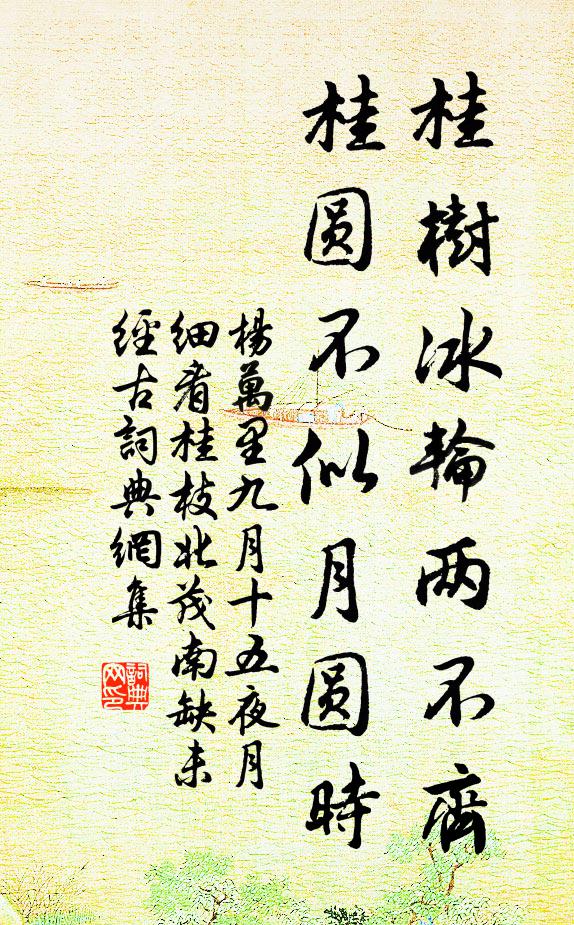 桂樹冰輪两不齊
桂圆不似月圆時
楊萬里九月十五夜月
细看桂枝北茂南缺未
經古詞典網集
詞典
网印